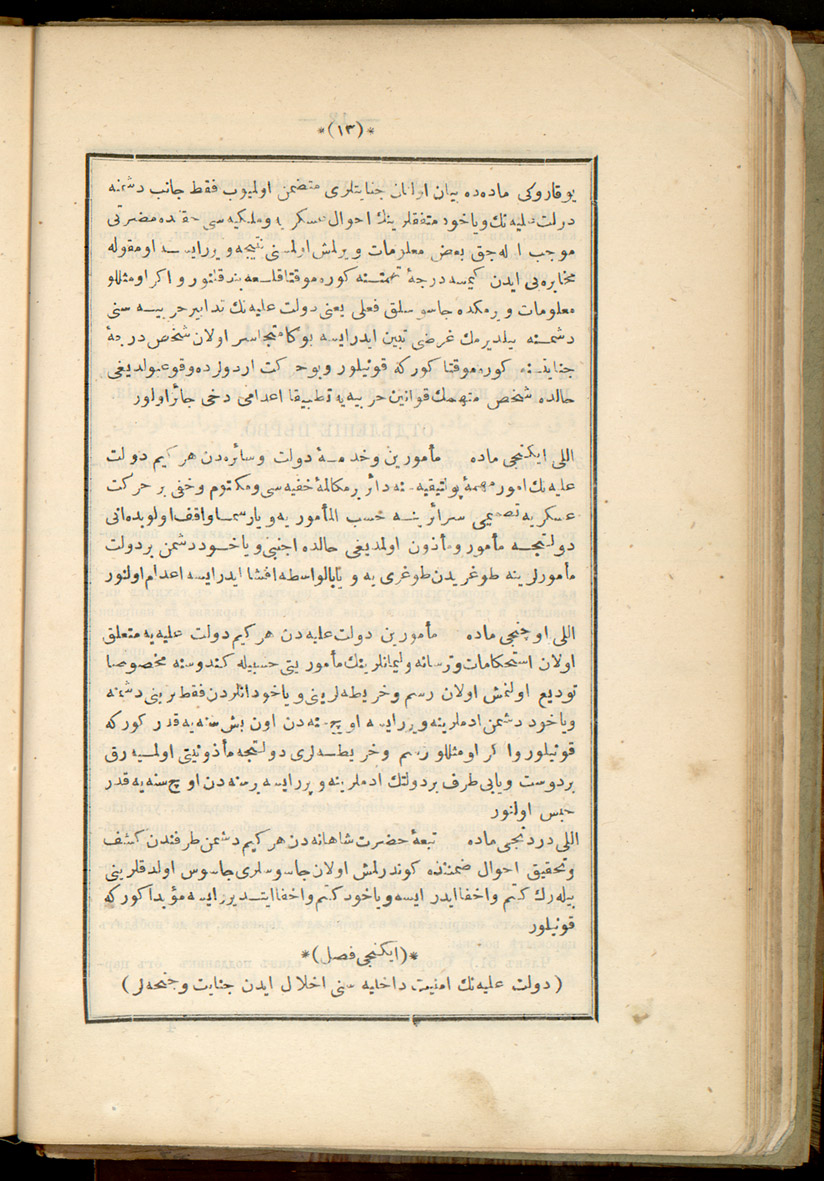 *(١٣)*
یوقاروکی ماده‌ده بیان اولنان جنایتلری متضمن اولمیوب فقط جانب دشمنه
دولت علیه‌نك ویاخود متفقلرینك احوال عسکریه وملکیه‌سی حقنده مضرتی
موجب اوله‌جق بعض معلومات ویرلمش اولمسنی نتیجه ویررایسه اومقوله
مخابره‌یی ایدن کیمسه درجهٔ تهمتنه کوره موقتا قلعه بند قلنور واکر اومثللو
معلومات ویرمکده جاسوسلق فعلی یعنی دولت علیه‌نك تدابیر حربیه سنی
دشمنه بیلدیرمك غرضی تبین ایدرایسه بوکا متجاسر اولان شخص درجهٔ
جنایتنه کوره موقتا کورکه قونیلور وبو حرکت اردولرده وقوعبولدیغی
حالده شخص متهمك قوانین حربیه‌یه تطبیقا اعدامی دخی جائز اولور
اللی ایکنجی ماده مأمورین وخدمهٔ دولت وسائره‌دن هرکیم دولت
علیه‌نك امور مهمهٔ پولتیقیه‌سنه دائر برمکالمهٔ خفیه‌سی ومکتوم وخفی بر حرکت
عسکریه تصمیمی سرائرینه حسب المأموریه ویا رسما واقف اولوبده‌انی
دولتجه مأمور ومأذون اولمدیغی حالده اجنبی ویاخود دشمن بردولت
مأمورلرینه طوغریدن طوغری‌یه ویا بالواسطه افشا ایدرایسه اعدام اولنور
اللی اوچنجی ماده مأمورین دولت علیه‌دن هرکیم دولت علیه‌یه متعلق
اولان استحکامات وترسانه ولیمانلرینك مأموریتی حسبیله کندوسنه مخصوصا
تودیع اولنمش اولان رسم وخریطه‌لرینی ویاخود انلردن فقط برینی دشمنه
ویاخود دشمن ادملرینه ویررایسه اوچ سنه‌دن اون بش سنه‌یه قدر کورکه
قونیلور واکر اومثللو رسم وخریطه‌لری دولتجه مأذونیتی اولمیه‌رق
بردوست ویا بی طرف بردولتك ادملرینه ویررایسه برسنه‌دن اوچ سنه‌یه قدر
حبس اولنور
اللی دردنجی ماده تبعهٔ حضرت شاهانه‌دن هرکیم دشمن طرفندن کشف
وتحقیق احوال ضمننده کوندرلمش اولان جاسوسلری جاسوس اولدقلرینی
بیله‌رك کتم واخفا ایدر ایسه ویاخود کتم واخفا ایتدیررایسه مؤبدا کورکه
قونیلور
*(ایکنجی فصل)*
(دولت علیه‌نك امنیت داخلیه سنی اخلال ایدن جنایت وجنحه‌لر)